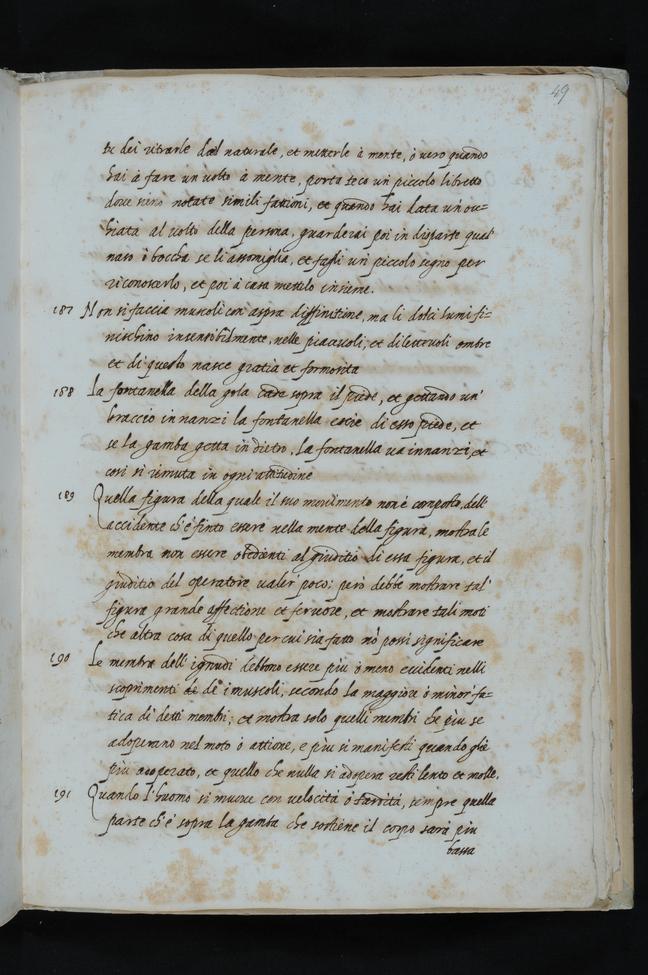 49
te dei ritrarle dal naturale, et metterle à mente, ò vero quando
hai à fare un volto à mente, porta teco un piccolo libretto
dove sieno notate simili fattioni, et quando hai data un'oc=
hiata al volto della persona, guarderai poi in disparte qual
naso ò boccha se li assomiglia, et fagli un piccolo segno per
riconoscerlo, et poi à casa mettilo insieme.
187 Non si faccia muscoli con aspra diffinitione, ma li dolci lumi fi=
nischino insensibilmente, nelle piacevoli, et dilettevoli ombre
et di questo nasce gratia et formosita
188 La fontanella della gola cade sopra il piede, et gettando un'
braccio innanzi la fontanella escie di esso piede, et
se la gamba getta in dietro, la fontanella va innanzi, et
cosi si rimuta in ogni attitudine
189 Quella figura della quale il suo movimento non è composto dell'
accidente ch'è finto essere nella mente della figura, mostra le
membra non essere obedienti al giuditio di essa figura, et il
giuditio del operatore valer' poco: però debbe mostrare tal'
figura grande affectione et fervore, et mostrare tali moti
che altra cosa di quello per cui sia fatto nõ possi significare
190 Le membra dell'ignudi debbono essere più ò meno evidenti nelli
scoprimenti de i muscoli, secondo la maggiore ò minor' fa=
tica di detti membri; et mostra solo quelli membri che più se
adoperano nel moto ò attione, e più si manifesti quando gliè
più adoperato, et quello che nulla si adopera resti lento et molle.
191 Quando l'huomo si muove con velocità ò tardità, sempre quella
parte ch'è sopra la gamba che sostiene il corpo sarà più
bassa